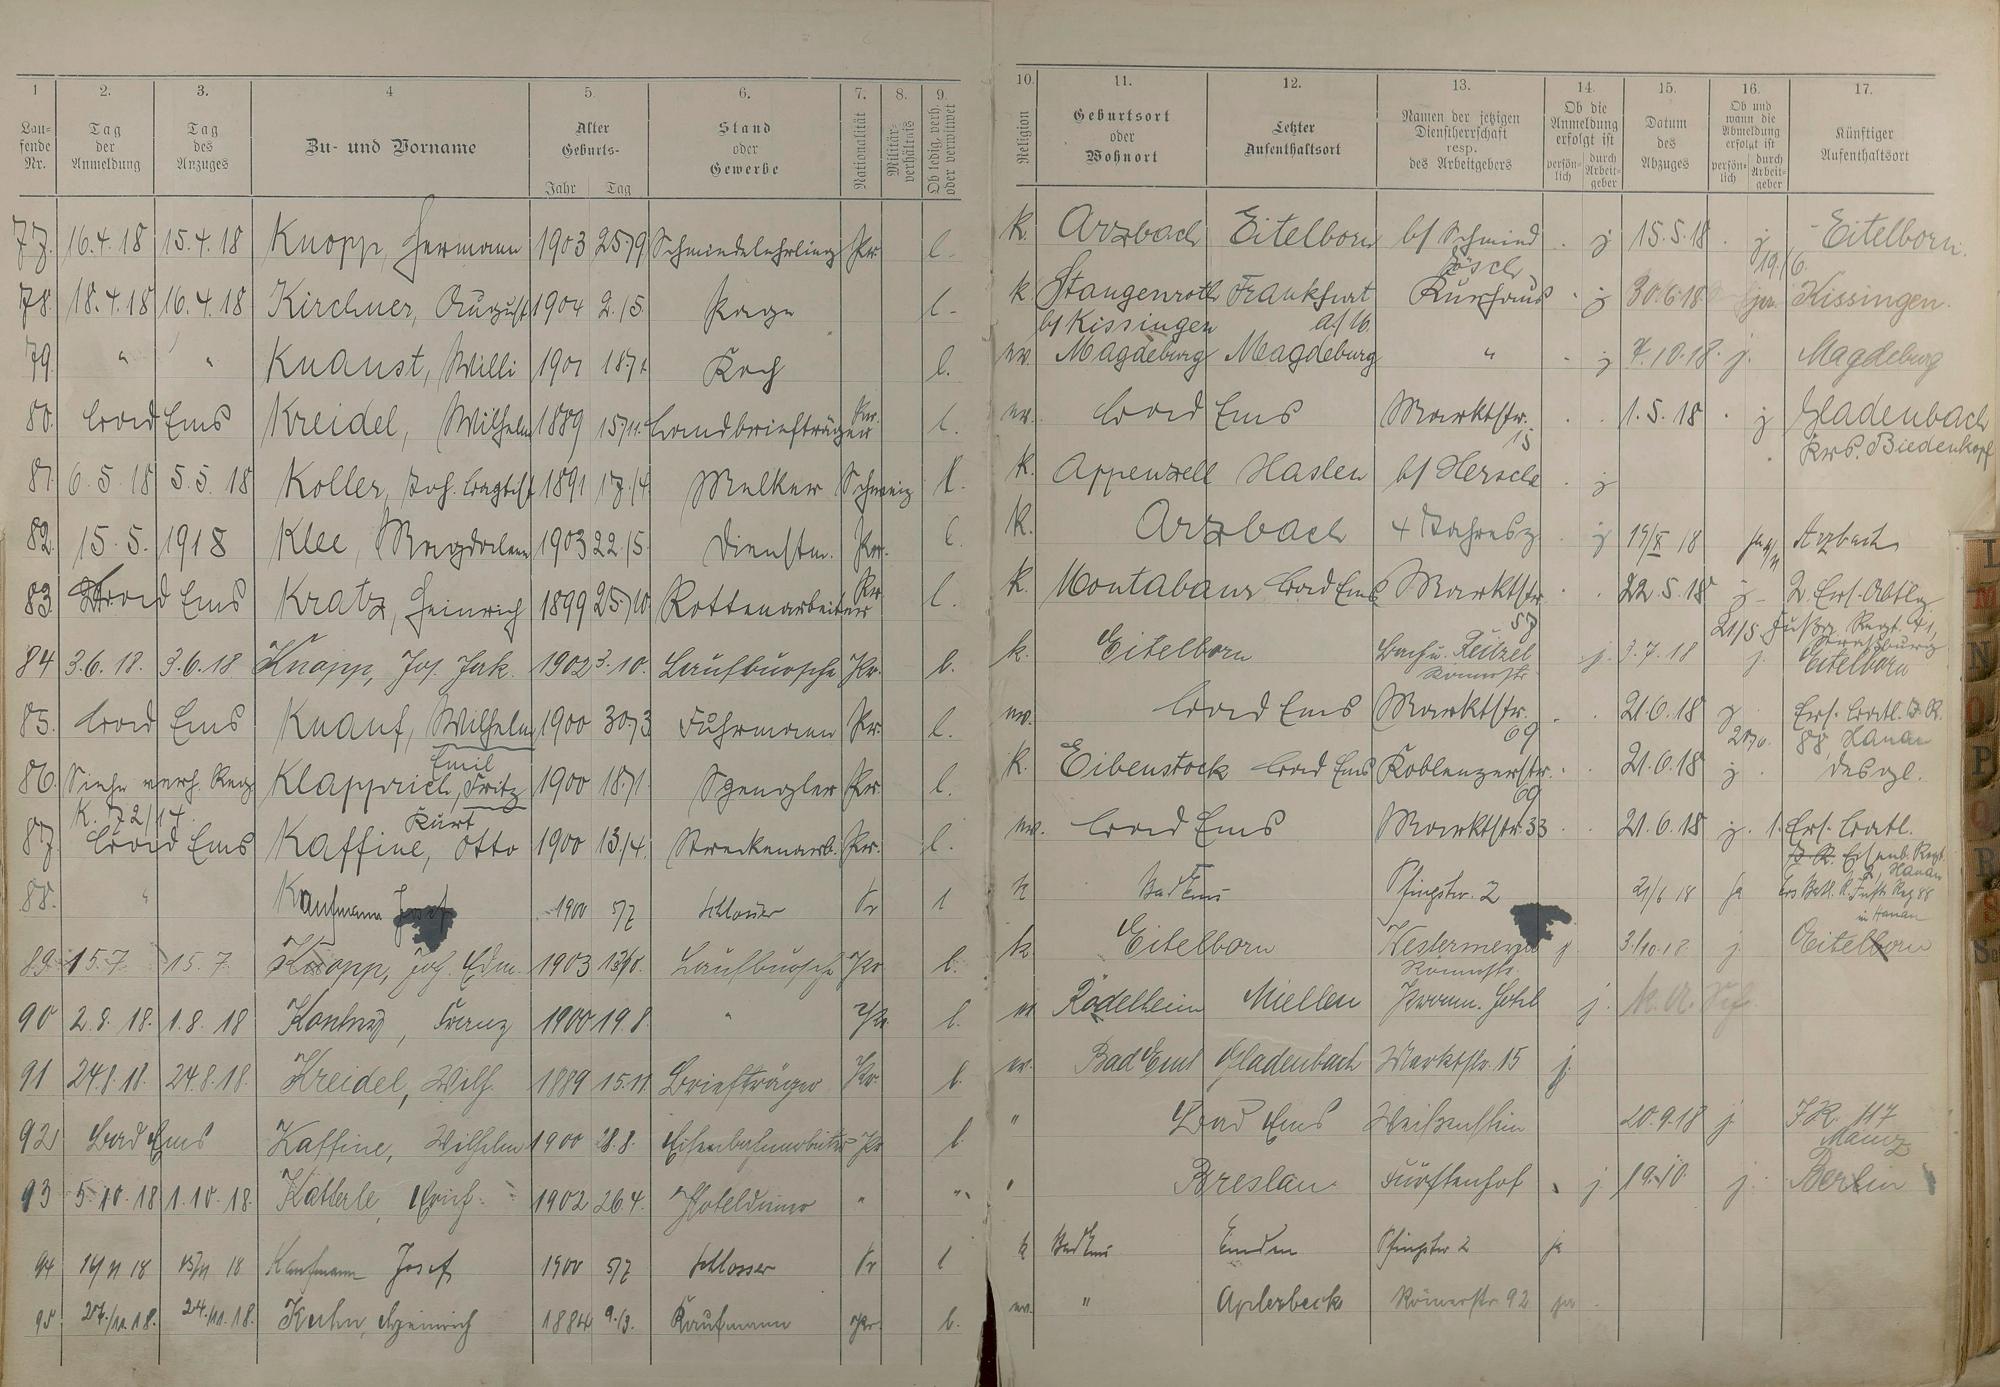 1 2. 3. 4 5. 6. 7. 8. 9. 10. 11. 12. 13. 14. 15. 16. 17.
Lau-fende Nr. Tag der Anmeldung Tag des Anzuges Zu- und Vorname Alter Geburts- Jahr Tag Stand oder Gewerbe Nationalität Militär-verhältnis Ob ledig, verh. oder verwitwet Religion Geburtsort oder Wohnort Letzter Aufenthaltsort Namen der jetzigen Dienstherrschaft resp. des Arbeitgebers Ob die Anmeldung erfolgt ist persön-lich durch Arbeit-geber Datum des Abzuges Ob und wann die Abmeldung erfolgt ist persön-lich durch Arbeit-geber Künftiger Aufenthaltsort
77. 16.4.18 15.4.18 Knopp, Hermann 1903 25/9 Schmiedelehrling Pr. l. k. Arzbach Eitelborn b/ Schmied Jösch j 15.5.18 j Eitelborn.
78. 18.4.18 16.4.18 Kirchner, August 1904 2./5. Page l. k. Stangenroth b/ Kissingen Frankfurt a/M. Kurhaus j 30.6.18 19./6. Kissingen.
79. " " Knaust, Willi 1901 18/1. Koch l. ev. Magdeburg Magdeburg " j 7.10.18. j. Magdeburg
80. Bad Ems Kreidel, Wilhelm 1889 15/11. Landbriefträger Pr. l. ev. Bad Ems Marktstr. 15 1.5.18 j Gladenbach Krs. Biedenkopf
81 6.5.18 5.5.18 Koller, Joh. Baptist 1891 17./4. Melker Schweiz l. k. Appenzell Haslen b/ Hersche j
82. 15.5.1918 Klee, Magdalena 1903 22./5. Dienstm. Pr. l. k. Arzbach 4 Jahresz j 19/X 18 Arzbach
83. Bad Ems Kratz, Heinrich 1899 25/10. Rottenarbeiter Pr. l. k. Montabaur Bad Ems Marktstr. 57 22.5.18 j 21/5. 2. Ers. Abtlg. Fußa. Regt. Straßburg
84 3.6.18. 3.6.18 Knopp, Jos. Jak. 1902 3.10. Laufbursche Pr. l. k. Eitelborn Römerstr. j. 3.7.18 j. Eitelborn
85. Bad Ems Knauf, Wilhelm 1900 30/3 Fuhrmann Pr. l. ev. Bad Ems Marktstr. 69 21.6.18 j 20/6. Ers. Batl. I.R. 88 Hanau
86. Siehe verh. Reg. K. 72/14. Klapprich, Emil Fritz 1900 18/1. Spengler Pr. l. k. Eibenstock Bad Ems Koblenzerstr. 69 21.6.18 j. desgl.
87. Bad Ems Kaffine, Kurt Otto 1900 13/4. Streckenarb. Pr. l. ev. Bad Ems Marktstr. 33 21.6.18 j. 1. Ers. Batl. Eisenb. Regt. 2, Hanau
88. " Kaufmann Josef 1900 5/7 Schlosser Pr l k Bad Ems Pfingstw. 2 21/6 18 ja Ers Batl. Reg 88 in Hanau
89. 15.7. 15.7. Knopp, Joh. Edm. 1903 Laufbursche Pr l. k. Eitelborn Westermeyer Römerstr. j 3./10.18 j. Eitelborn
90 2.8.18. 1.8.18 Franz 1900 19.8. " Pr. l. ev Rödelheim Miellen Hotel j.
91 24.8.18. 24.8.18. Kreidel, Wilh. 1889 15.11. Briefträger Pr. l. ev. Bad Ems Gladenbach Marktstr. 15 j.
92. Bad Ems Kaffine, Wilhelm 1900 28.8. Eisenbahnarbeiter Pr l " Bad Ems Weißenstein 20.9.18 j. I.R. 117 Mainz
93 5.10.18 1.10.18. Katterle, Erich 1902 26.4. Hoteldiener " " " Breslau Fürstenhof j 19.10 j Berlin
94 14/11 18 13/11 18 Kaufmann Josef 1900 5/7 Schlosser Pr l k Bad Ems Emden Pfingstw 2 ja
95. 27./11.18. 24./11.18. Kuhn, Heinrich 1884 9./3. Kaufmann Pr. l. ev. " Aplerbeck Römerstr. 92 ja
L
M
N
O
P
Q
R
S